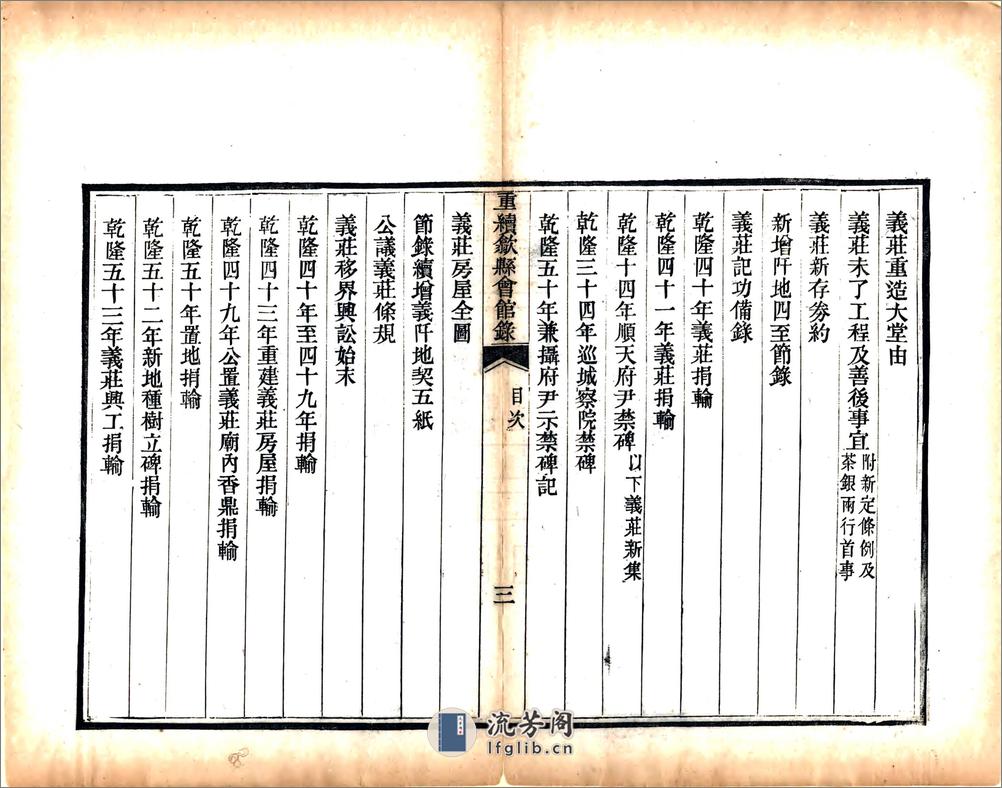 義莊重造大堂由
義莊未了工程及善後事宜附新定條例及茶銀兩行首事
義莊新存劵約
新增阡地四至節錄
義莊記功備錄
乾隆四十年義莊捐輸
乾隆四十一年義莊捐輸
乾隆十四年順天府尹禁碑以下義莊新集
乾隆三十四年巡城察院禁碑
乾隆五十年兼攝府尹示禁碑記
重續歙縣會館錄 目次 三
義莊房屋全圖
節錄續增義阡地契五紙
公議義莊條規
義莊移界興訟始末
乾隆四十年至四十九年捐輸
乾隆四十三年重建義莊房屋捐輸
乾隆四十九年公置義莊廟內香鼎捐輸
乾隆五十年置地捐輸
乾隆五十二年新地種樹立碑捐輸
乾隆五十三年義莊興工捐輸
流芳阁
lfglib.cn